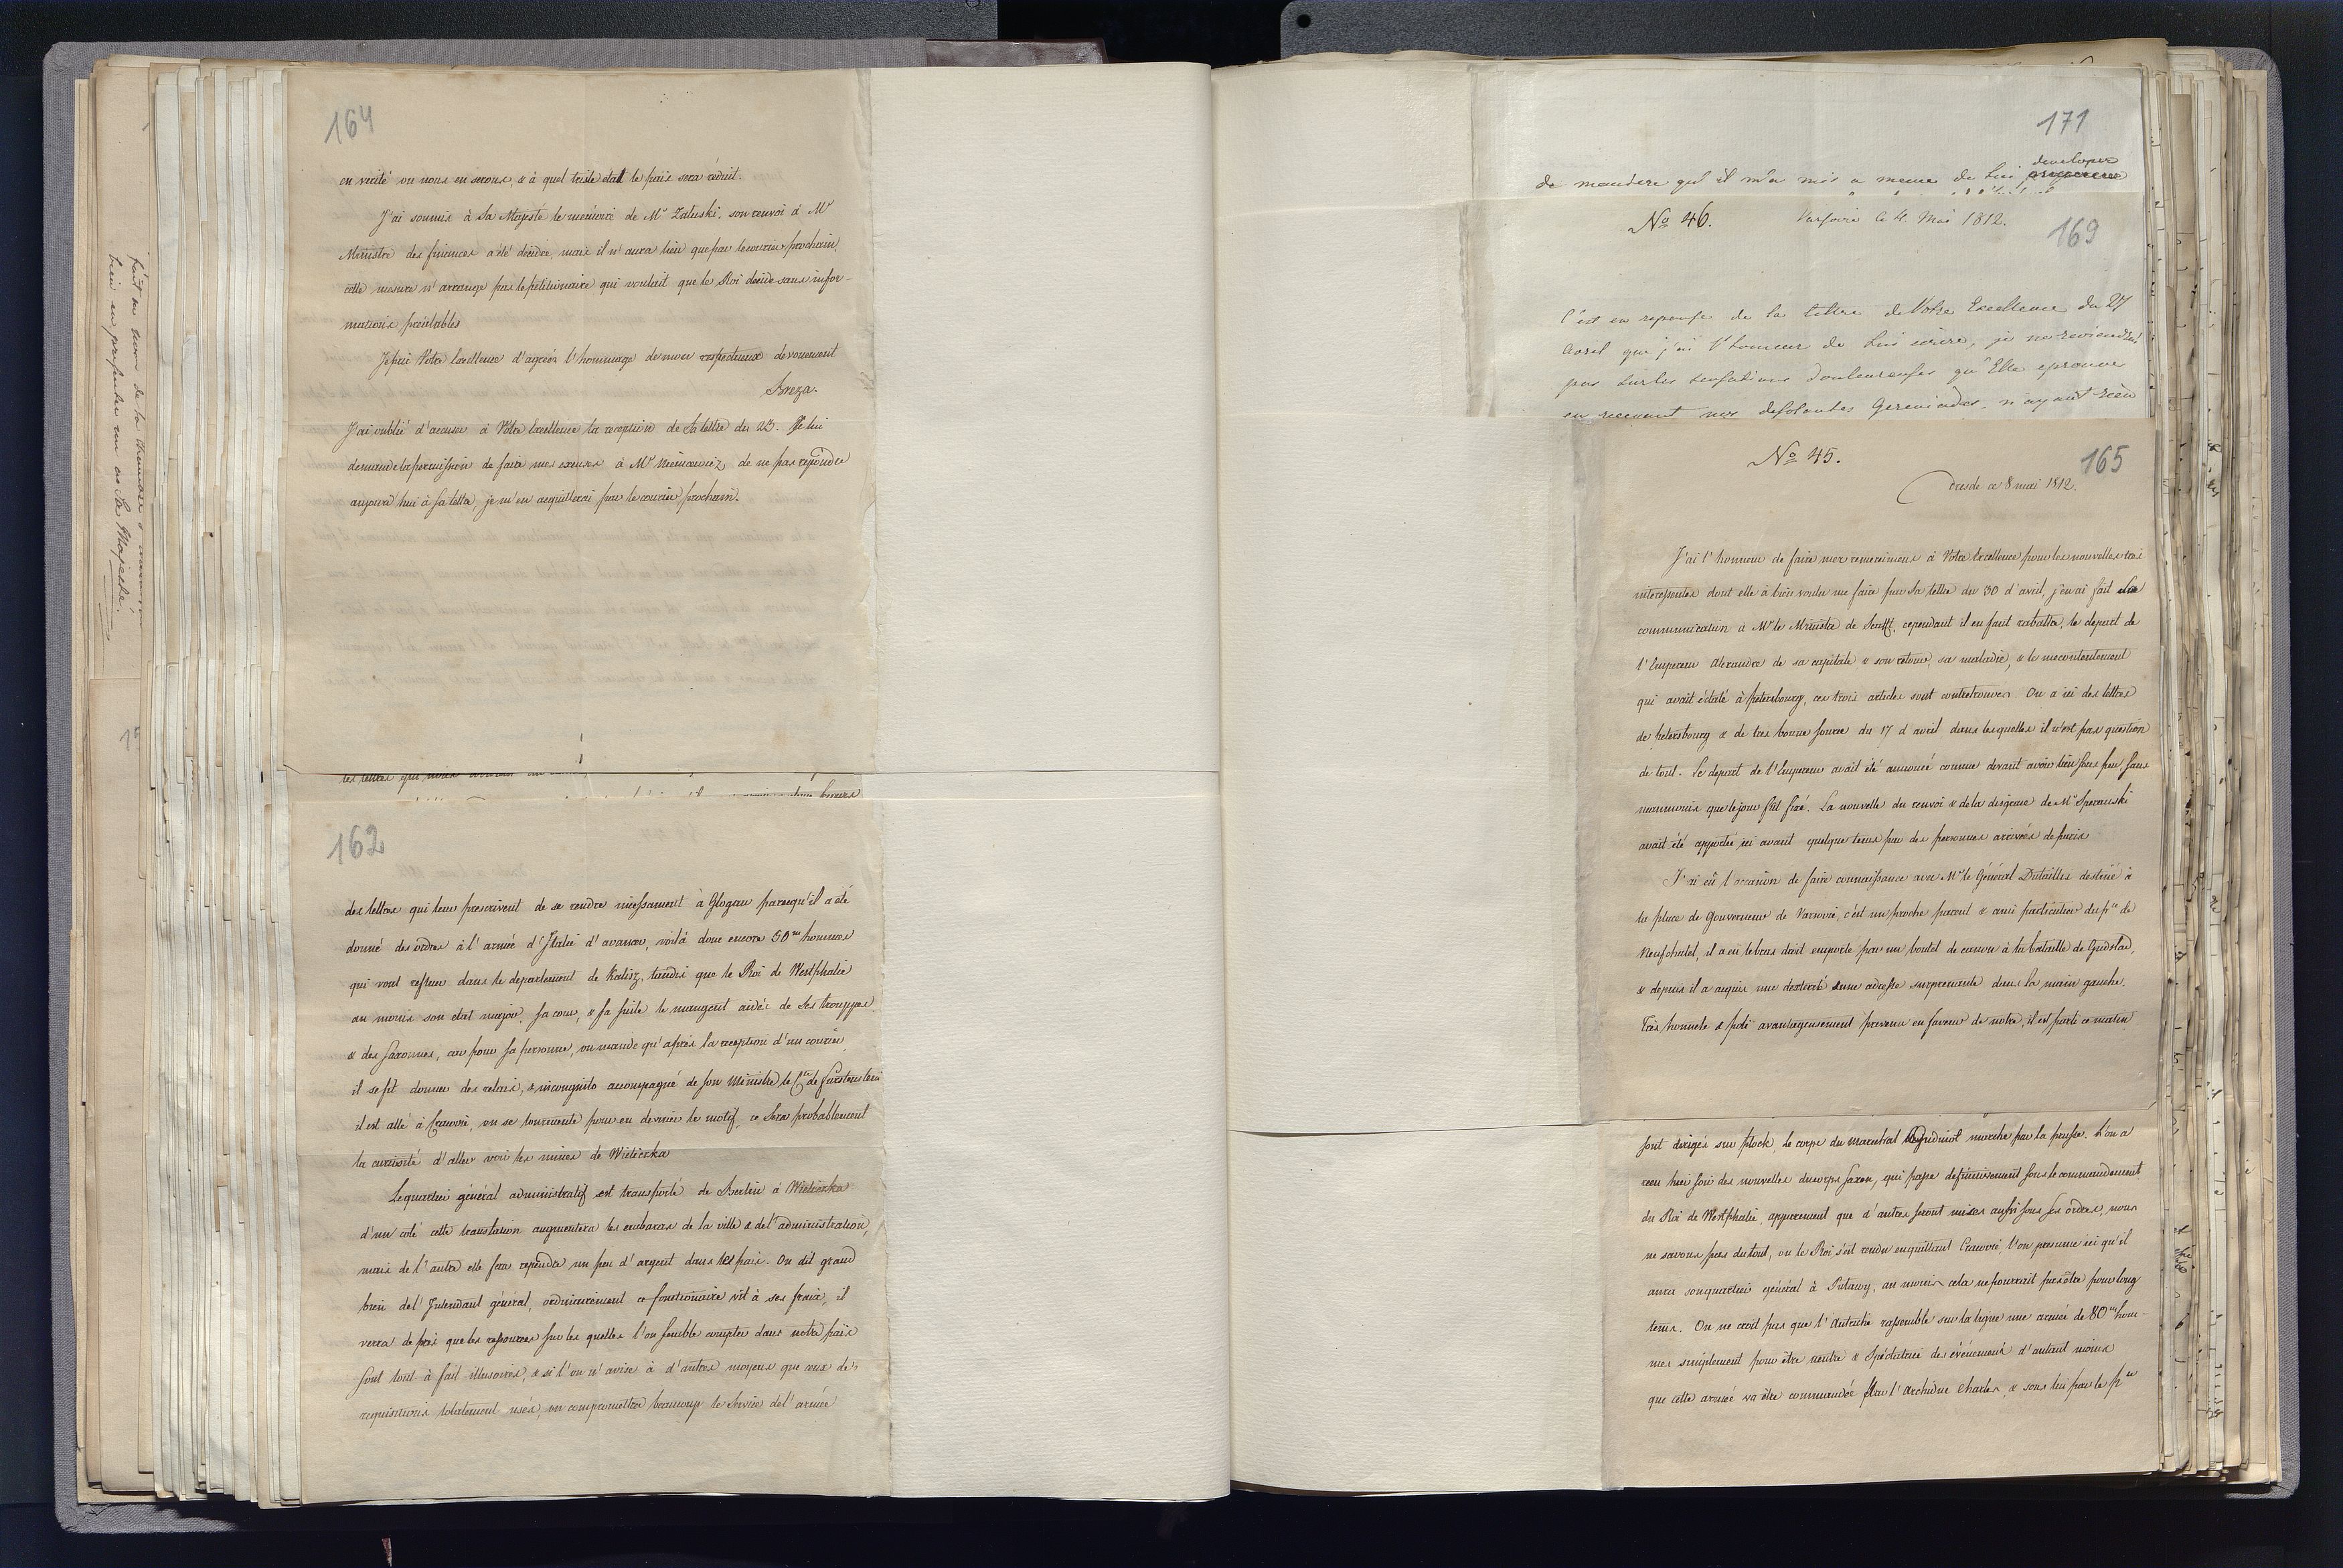 164
en verité ou nous en serons, & à quel triste etat le païs sera réduit.
J'ai soumis à Sa Majesté le memoire de Mr Zaluski, son renvoi à Mr
Ministre des finances a été decidé, mais il n'aura lieu que par le courier prochain,
cette mesure n'arrange pas le petitionaire qui voulait que le Roi decide sans infor-
mations préalables
Je prie Votre Excellence d'agréer l'hommage de mon respectueux devouement
Breza.
J'ai oublié d'accuser à Votre Excellence la reception de Sa lettre du 23. Je lui
demande la permission de faire mes excuses à Mr Niemcewicz, de ne pas repondre
aujourd'hui à sa lettre, je m'en acquitterai par le courier prochain.
162
des lettres qui leur prescrivent de se rendre incessament à Glogau parcequ'il a été
donné des ordres à l'armée d'Italie d'avancer, voilà donc encore 50m hommes
qui vont refluer dans le departement de Kalisz, tandis que le Roi de Westphalie
au moins son etat major, sa cour, & sa suite le mangent aidés de ses trouppes
& des saxonnes, car pour sa personne, on mande qu'après la reception d'un courier
il se fit donner des relais, & incongnito accompagné de son Ministre le Cte de Furstenstein
il est allé à Cracovie, on se tourmente pour en deviner le motif, ce sera probablement
la curiosité d'aller voir les mines de Wieliczka
Le quartier général administratif est transporté de Berlin à Wieliczka
d'un coté cette translation augmentera les embaras de la ville & de l'administration,
mais de l'autre elle fera repandre un peu d'argent dans le païs. On dit grand
bien de l'Intendant général, ordinairement ce fonctionaire vit à ses fraix, il
verra de près que les ressources sur les quelles l'on semble compter dans notre païs
sont tout à fait illusoires, & si l'on n'avise à d'autres moyens que ceux de
requisitions totalement usés, on compromettra beaucoup le service de l'armée
fait au nom de la
bien en presenter un a Sa Majesté.
171
de maniere qu'il m'a mis a meme de Lui developer
No 46. Varsovie le 4. Mai 1812.
169
C'est en reponse de la lettre de Votre Excellence du 27
Avril que j'ai l'honneur de Lui ecrire, je ne reviendrai
pas sur les sensations douloureuses qu'Elle eprouve
en recevant nos desolantes Geremiades, n'ayant rien
No 45.
165
Dresde ce 8 mai 1812.
J'ai l'honneur de faire mes remerciemens à Votre Excellence pour les nouvelles très
interessantes dont elle à bien voulu me faire par Sa lettre du 30 d'avril, j'en ai fait
communication à Mr le Ministre de Senfft, cependant il en faut rabattre, le depart de
l'Empereur Alexandre de sa capitale & son retour, sa maladie, & le mecontentement
qui avait éclaté à Petersbourg, ces trois articles sont controuvés. On a ici des lettres
de Petersbourg & de tres bonne source du 17 d'avril dans lesquelles il n'est pas question
de tout. Le depart de l'Empereur avait été annoncé comme devant avoir lieu sous peu sans
neanmoins que le jour fut fixé. La nouvelle du renvoi & de la disgrace de Mr Speranski
avait été apportée ici avant quelque tems par des personnes arrivées de Paris
J'ai eû l'occasion de faire connaissance avec Mr le Général Dutaillis destiné à
la place de Gouverneur de Varsovie, c'est un proche parent & ami particulier du Pce de
Neufchatel, il a eu le bras droit emporté par un boulet de canon à la bataille de Gudstad,
& depuis il a acquis une dexterité & une adresse surprenante dans la main gauche.
Très honnete & poli avantageusement prevenu en faveur de notre, il est parti ce matin
sont dirigés sur Plock, le corps du Marechal Oudinot marche par la Prusse. L'on a
reçu hier soir des nouvelles du corps saxon, qui passe definitivement sous le commandement
du Roi de Westphalie, apparement que d'autres seront mises aussi sous ses ordres, nous
ne savons pas du tout, ou le Roi s'est rendu en quittant Cracovie, l'on presume ici qu'il
aura son quartier général à Pulawy, au moins cela ne pourrait pas être pour long
tems. On ne croit pas que l'Autriche rassemble sur la ligne une armée de 80m hom-
mes simplement pour être neutre & spectatrice des événemens d'autant moins
que cette armée va être commandée par l'Archiduc Charles, & sous lui par le Pce